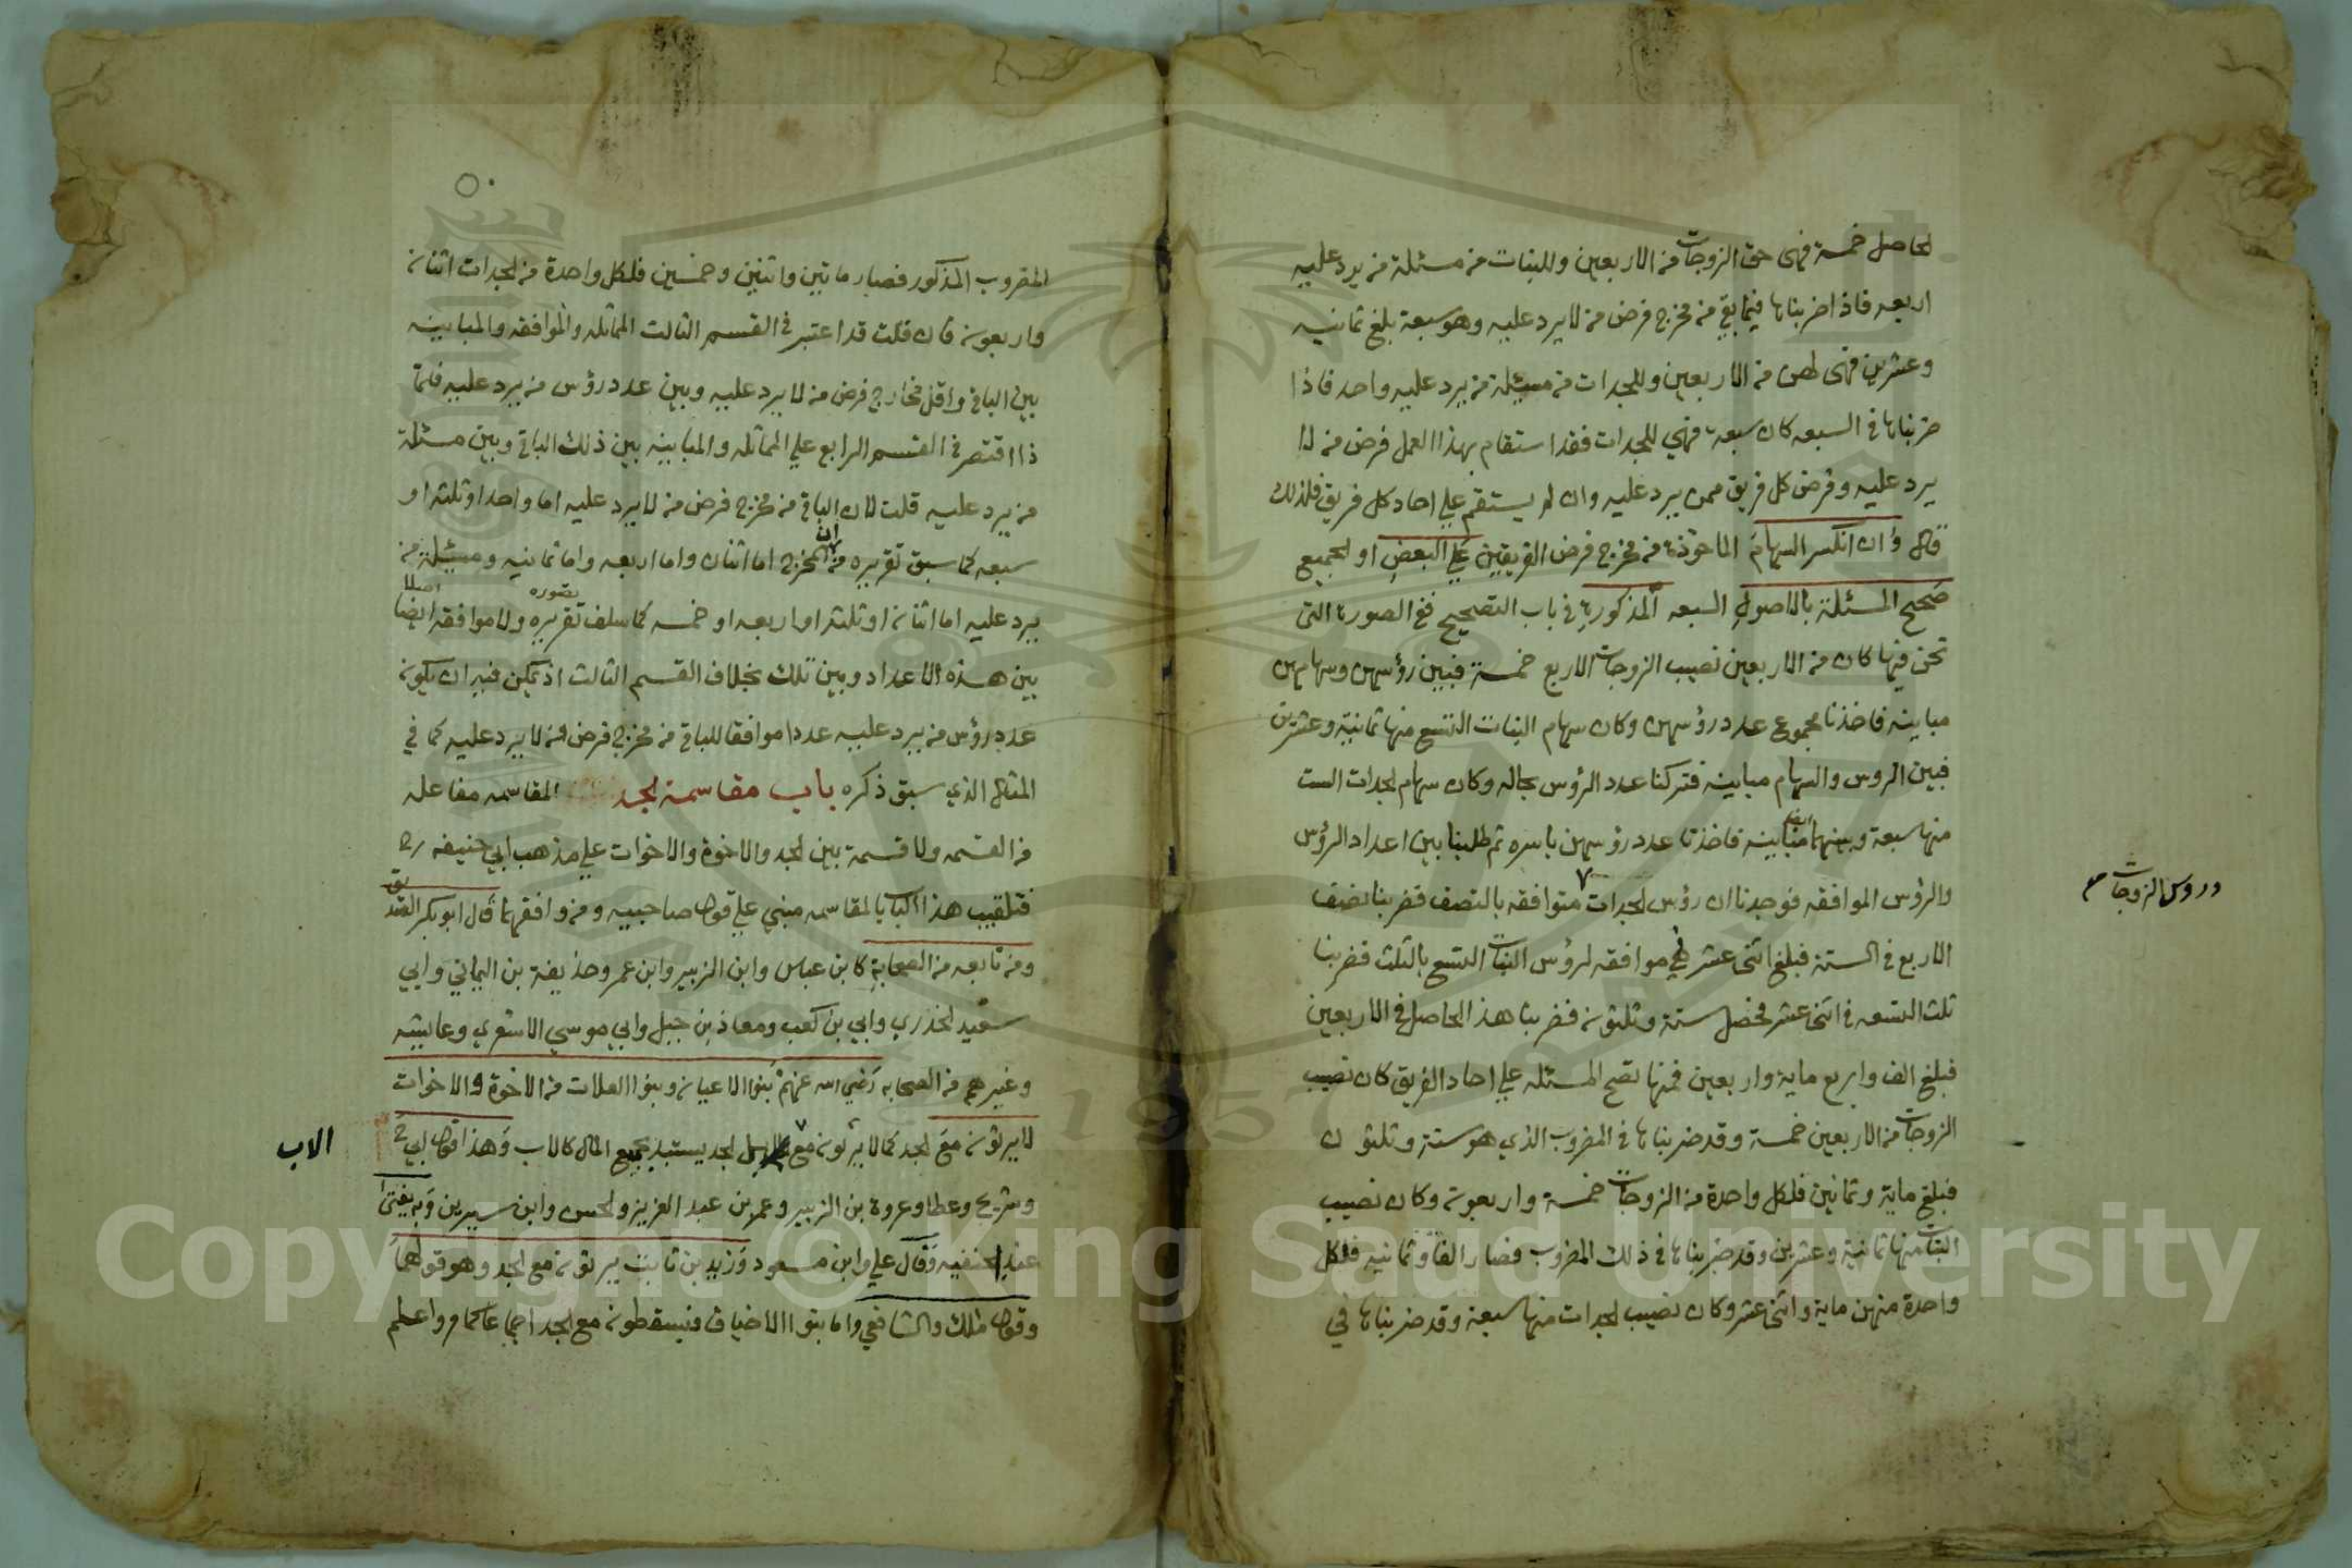 الحاصل خمسة فهى حق الزوجات من الاربعين وللبنات من مسئلة من يرد عليه
اربعه فاذا ضربناها فيما بقي من مخرج فرض من لا يرد عليه وهو سبعة بلغ ثمانيه
وعشرين فهى لهن من الاربعين وللجدات من مسئلة من يرد عليه واحد فاذا
ضربناها في السبعه كان سبعة فهي للجدات فقد استقام بهذا العمل فرض من لا
يرد عليه وفرض كل فريق ممن يرد عليه وان لم يستقم علي احاد كل فريق فلذلك
قال وان انكسر السهام الماخوذة من مخرج فرض الفريقين علي البعض او الجميع
صحح المسئلة بالاصول السبعه المذكورة في باب التصحيح ففي الصورة التى
نحن فيها كان من الاربعين نصيب الزوجات الاربع خمسة فبين رؤسهن وسهامهن
مباينه فاخذنا مجموع عدد رؤسهن وكان سهام البنات التسع منها ثمانية وعشرين
فبين الروس والسهام مباينه فتركنا عدد الرؤس بحاله وكان سهام الجدات الست
منها سبعة وبينهما ايضا مباينه فاخذنا عدد رؤسهن باسره ثم طلبنا بين اعداد الرؤس
والرؤس الموافقه فوجدنا ان رؤس الجدات متوافقه بالنصف فضربنا نصف
وروس الزوجات
الاربع في الستة فبلغ اثنى عشر هي موافقه لرؤس البنات التسع بالثلث فضربنا
ثلث التسعه في اثنى عشر فحصل ستة وثلثون فضربنا هذا الحاصل في الاربعين
فبلغ الف واربع ماية واربعين فمنها تصح المسئله علي احاد الفريق كان نصيب
الزوجات من الاربعين خمسة وقد ضربناها في المضروب الذي هو ستة وثلثون
فبلغ ماية وثمانين فلكل واحدة من الزوجات خمسة واربعون وكان نصيب
البنات منها ثمانية وعشرين وقد ضربناها في ذلك المضروب فصار الفا وثمانيه فلكل
واحدة منهن ماية واثنى عشر وكان نصيب الجدات منها سبعة وقد ضربناها في
٥٠
المضروب المذكور فصار مايتين واثنين وخمسين فلكل واحدة من الجدات اثنان
واربعون فان قلت قد اعتبر في القسم الثالث المماثله والموافقه والمباينه
بين الباقي واقل مخارج فرض من لا يرد عليه وبين عدد رؤس من يرد عليه فلما
ذا اقتصر في القسم الرابع علي المماثله والمباينه بين ذلك الباقي وبين مسئلة
من يرد عليه قلت لان الباقي من مخرج فرض من لا يرد عليه اما واحد او ثلثه او
سبعه كما سبق تقريره من ان المخرج اما اثنان واما اربعه واما ثمانيه ومسئلة من
يرد عليه اما اثنان او ثلثه او اربعه او خمسه كما سلف تقريره تصوره ولا موافقه ايضا اصلا
بين هذه الاعداد وبين تلك بخلاف القسم الثالث اذ يمكن فيه ان يكون
عدد رؤس من يرد عليه عددا موافقا للباقي من مخرج فرض من لا يرد عليه كما في
المثال الذي سبق ذكره باب مقاسمة الجد المقاسمه مفاعله
من القسمه ولا قسمة بين الجد والاخوة والاخوات علي مذهب ابي حنيفه رح
فتلقيب هذا الباب بالمقاسمه مبني علي قول صاحبيه ومن وافقهما قال ابو بكر الصديق
ومن تابعه من الصحابة كابن عباس وابن الزبير وابن عمر وحذيفة بن اليماني وابي
سعيد الخدري وابي بن كعب ومعاذ بن جبل وابي موسي الاشعري وعايشه
وغيرهم من الصحابه رضي الله عنهم بنوا الاعيان وبنوا العلات من الاخوة والاخوات
لا يرثون مع الجد كما لا يرثون مع بل الجد يستبد بجميع المال كالاب وهذا قول ابي ح
الاب
وشريح وعطا وعروة بن الزبير وعمر بن عبد العزيز والحسن وابن سيرين وبه يفتى
عند الحنفيه وقال علي وابن مسعود وزيد بن ثابت يرثون مع الجد وهو قولهما
وقول مالك والشافعي واما بنوا الاخياف فيسقطون مع الجد اجماعا كما مر واعلم